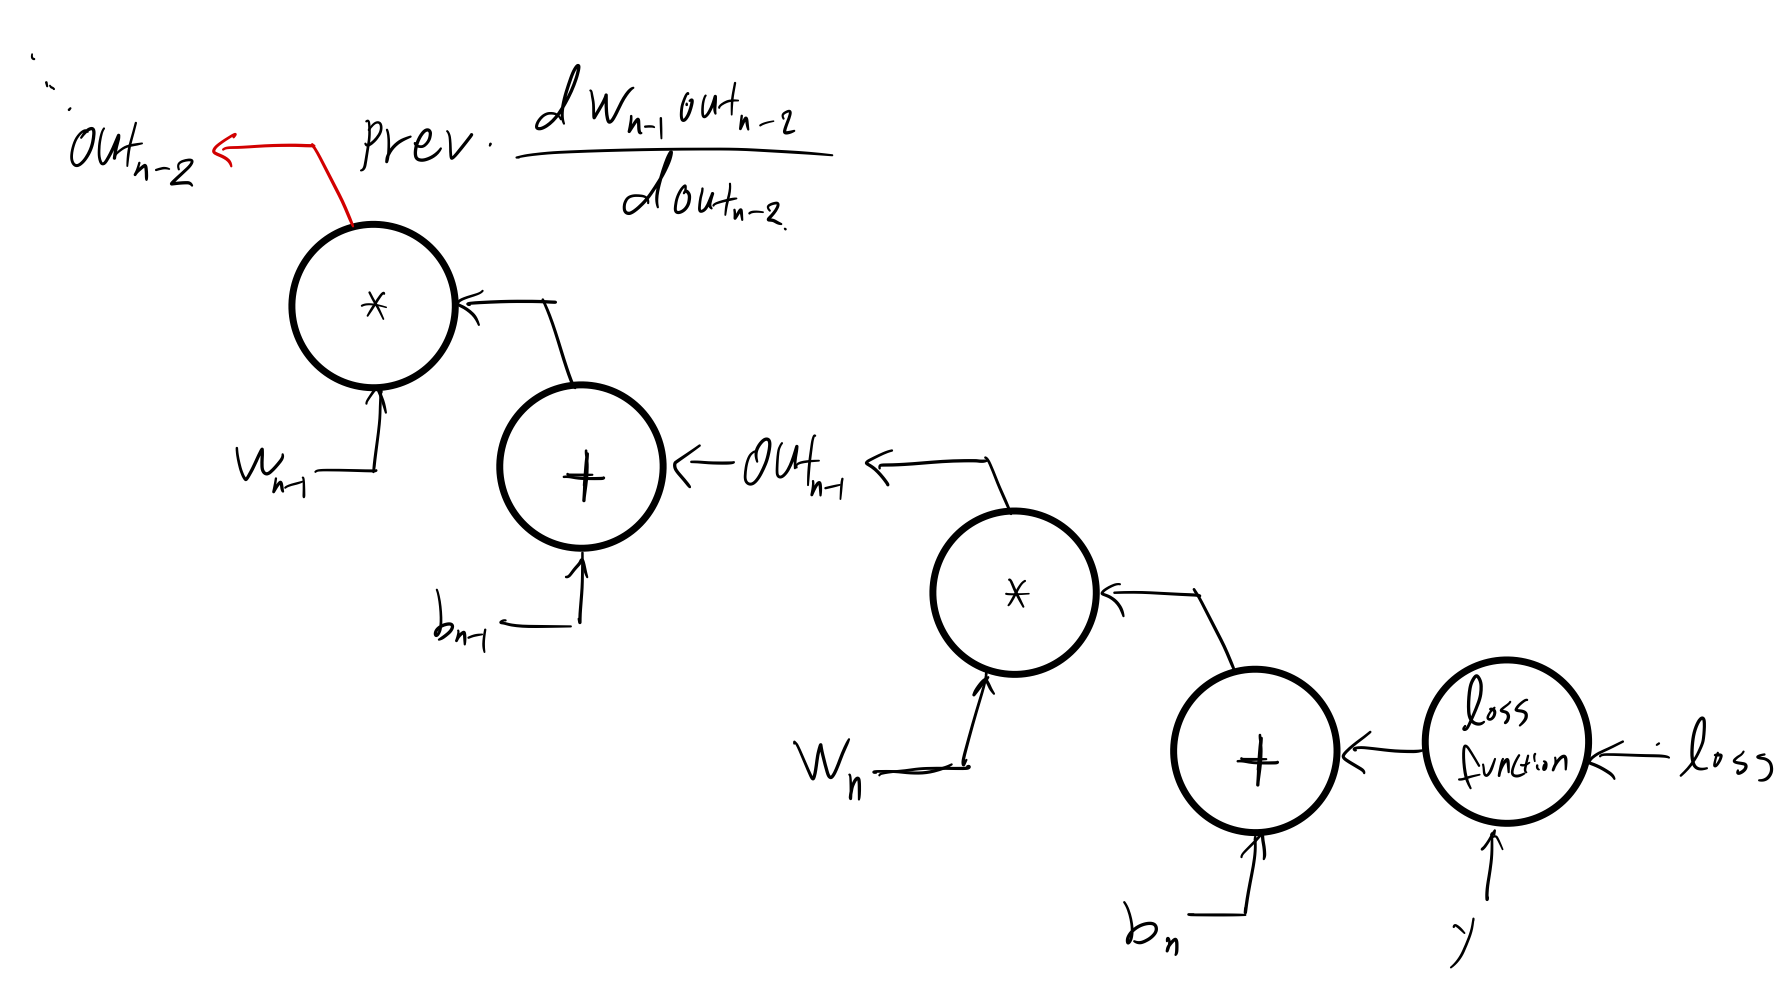 out_{n-2}
prev · \frac{d w_{n-1} out_{n-2}}{d out_{n-2}}
*
w_{n-1}
+
out_{n-1}
b_{n-1}
*
w_n
+
loss
function
loss
b_n
y